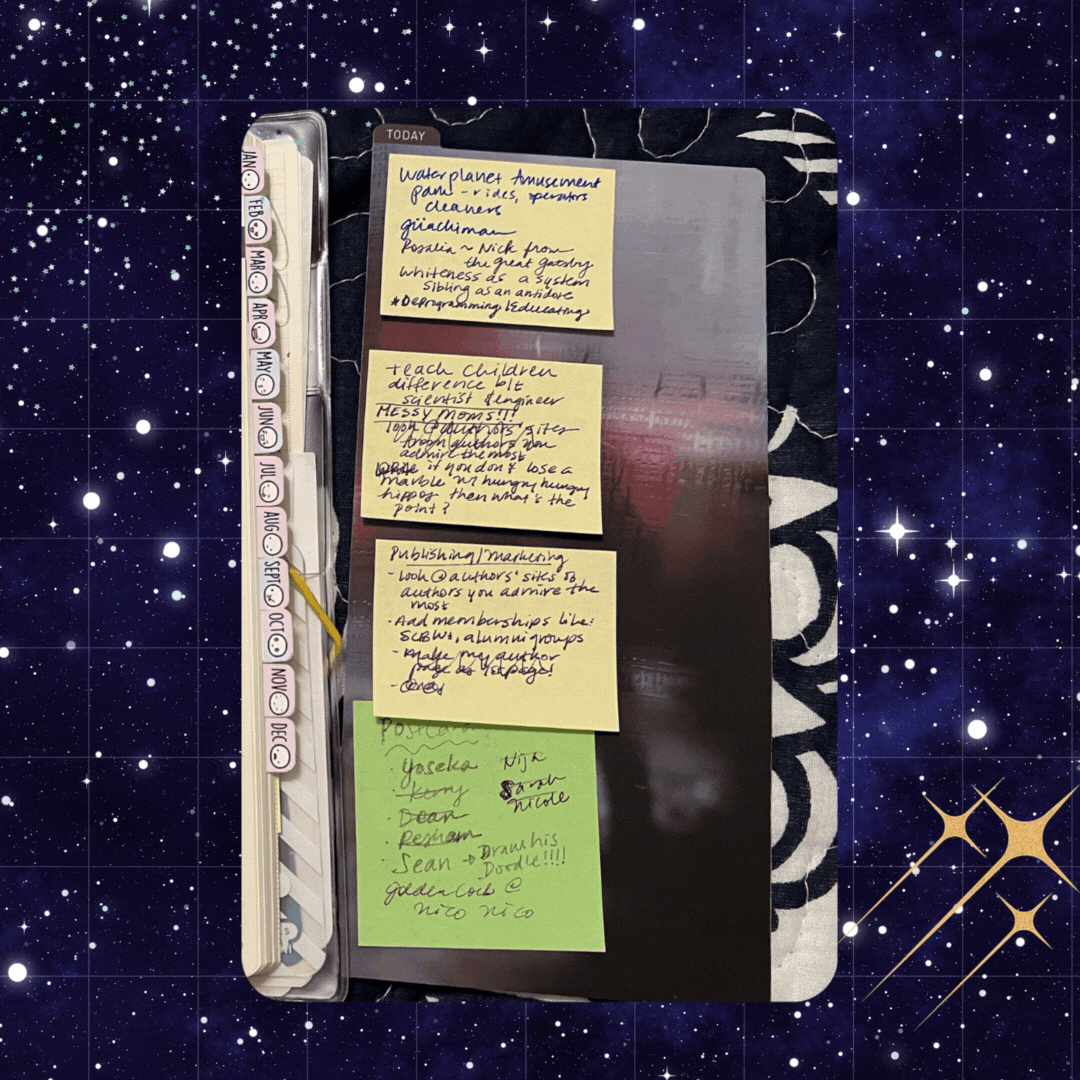 JAN
FEB
MAR
APR
MAY
JUN
JUL
AUG
SEPT
OCT
NOV
DEC
TODAY
Waterplanet Amusement
park - rides, operators
cleaners
güachiman
Rosalia ~ Nick from
the great gatsby
Whiteness as a system
Sibling as an antidote
*Deprogramming/Educating
teach children
difference b/t
scientist & engineer
MESSY MOMS!!!
look @ authors' sites
from authors you
admire the most
if you don't lose a
marble w/ hungry hungry
hippos then what's the
point?
Publishing/marketing
- Look @ authors' sites
authors you admire the
most
- Add memberships like:
SCBWI, alumni groups
- Make my author
page as 1st page!
Postcards
· Yoseka
· Kerry
· Dean
Resham
· Sean → Draw his
Doodle!!!!
golden cock @
nico nico
Nija
Sarah
Nicole